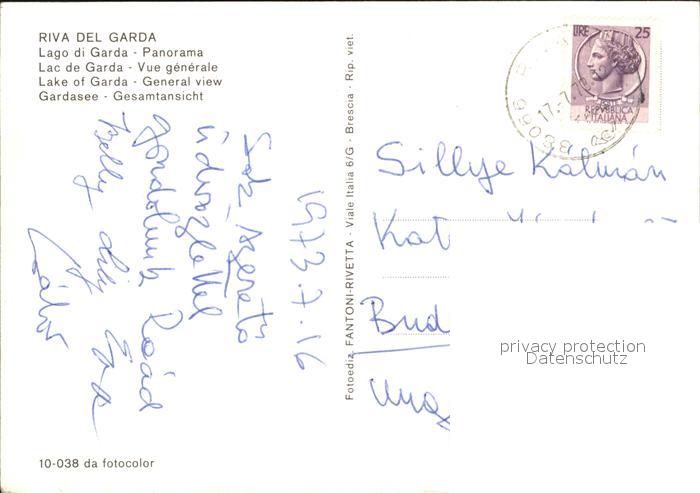 RIVA DEL GARDA
Lago di Garda - Panorama
Lac de Garda - Vue générale
Lake of Garda - General view
Gardasee - Gesamtansicht
1973. 7. 16
Sok szerető
üdvözlettel
gondolunk Reád
Lili Éva
10-038 da fotocolor
Fotoediz. FANTONI-RIVETTA - Viale Italia 6/G - Brescia - Rip. viet.
LIRE 25
REPVBBLICA
ITALIANA
38066
17.7.
Sillye Kálmán
Kat
Bud
privacy protection
Datenschutz